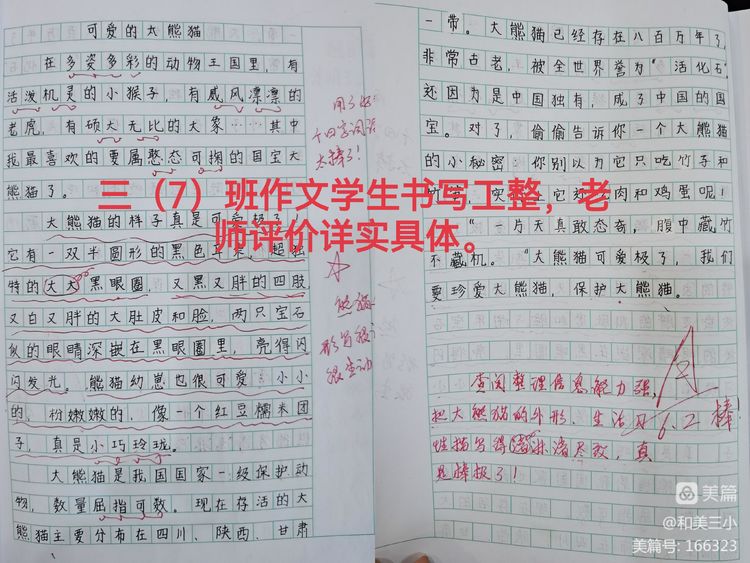 可爱的大熊猫
在多姿多彩的动物王国里，有
活泼机灵的小猴子，有威风凛凛的
老虎，有硕大无比的大象……其中
我最喜欢的要属憨态可掬的国宝大
熊猫了。
大熊猫的样子真是可爱极了！
它有一双半圆形的黑色耳朵，超独
特的大大黑眼圈，又黑又胖的四肢
又白又胖的大肚皮和脸，两只宝石
似的眼睛深嵌在黑眼圈里，亮得闪
闪发光。熊猫幼崽也很可爱，小小
的，粉嫩嫩的，像一个红豆糯米团
子，真是小巧玲珑。
大熊猫是我国国家一级保护动
物，数量屈指可数。现在存活的大
熊猫主要分布在四川、陕西、甘肃
用了好
大棒了！
熊猫
很生动
一带。大熊猫已经存在八百万年了，
非常古老，被全世界誉为“活化石”，
还因为是中国独有，成了中国的国
宝。对了，偷偷告诉你一个大熊猫
的小秘密：你别以为它只吃竹子和
肉和鸡蛋呢！
“一片天真敢态奇，腹中藏竹
不藏机。”大熊猫可爱极了，我们
要珍爱大熊猫，保护大熊猫。
查阅整理信息能力强，
把大熊猫的外形、生活习
性描写得淋漓尽致，真
是棒极了！
棒！
6.2
三（7）班作文学生书写工整，老
师评价详实具体。
美篇
@和美三小
美篇号: 166323